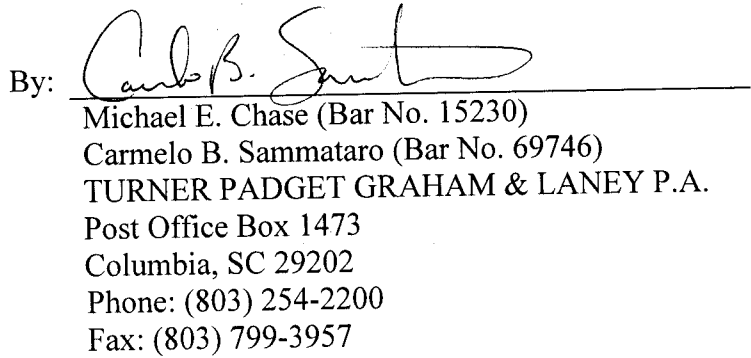 By: Carmelo B. Sammataro
Michael E. Chase (Bar No. 15230)
Carmelo B. Sammataro (Bar No. 69746)
TURNER PADGET GRAHAM & LANEY P.A.
Post Office Box 1473
Columbia, SC 29202
Phone: (803) 254-2200
Fax: (803) 799-3957